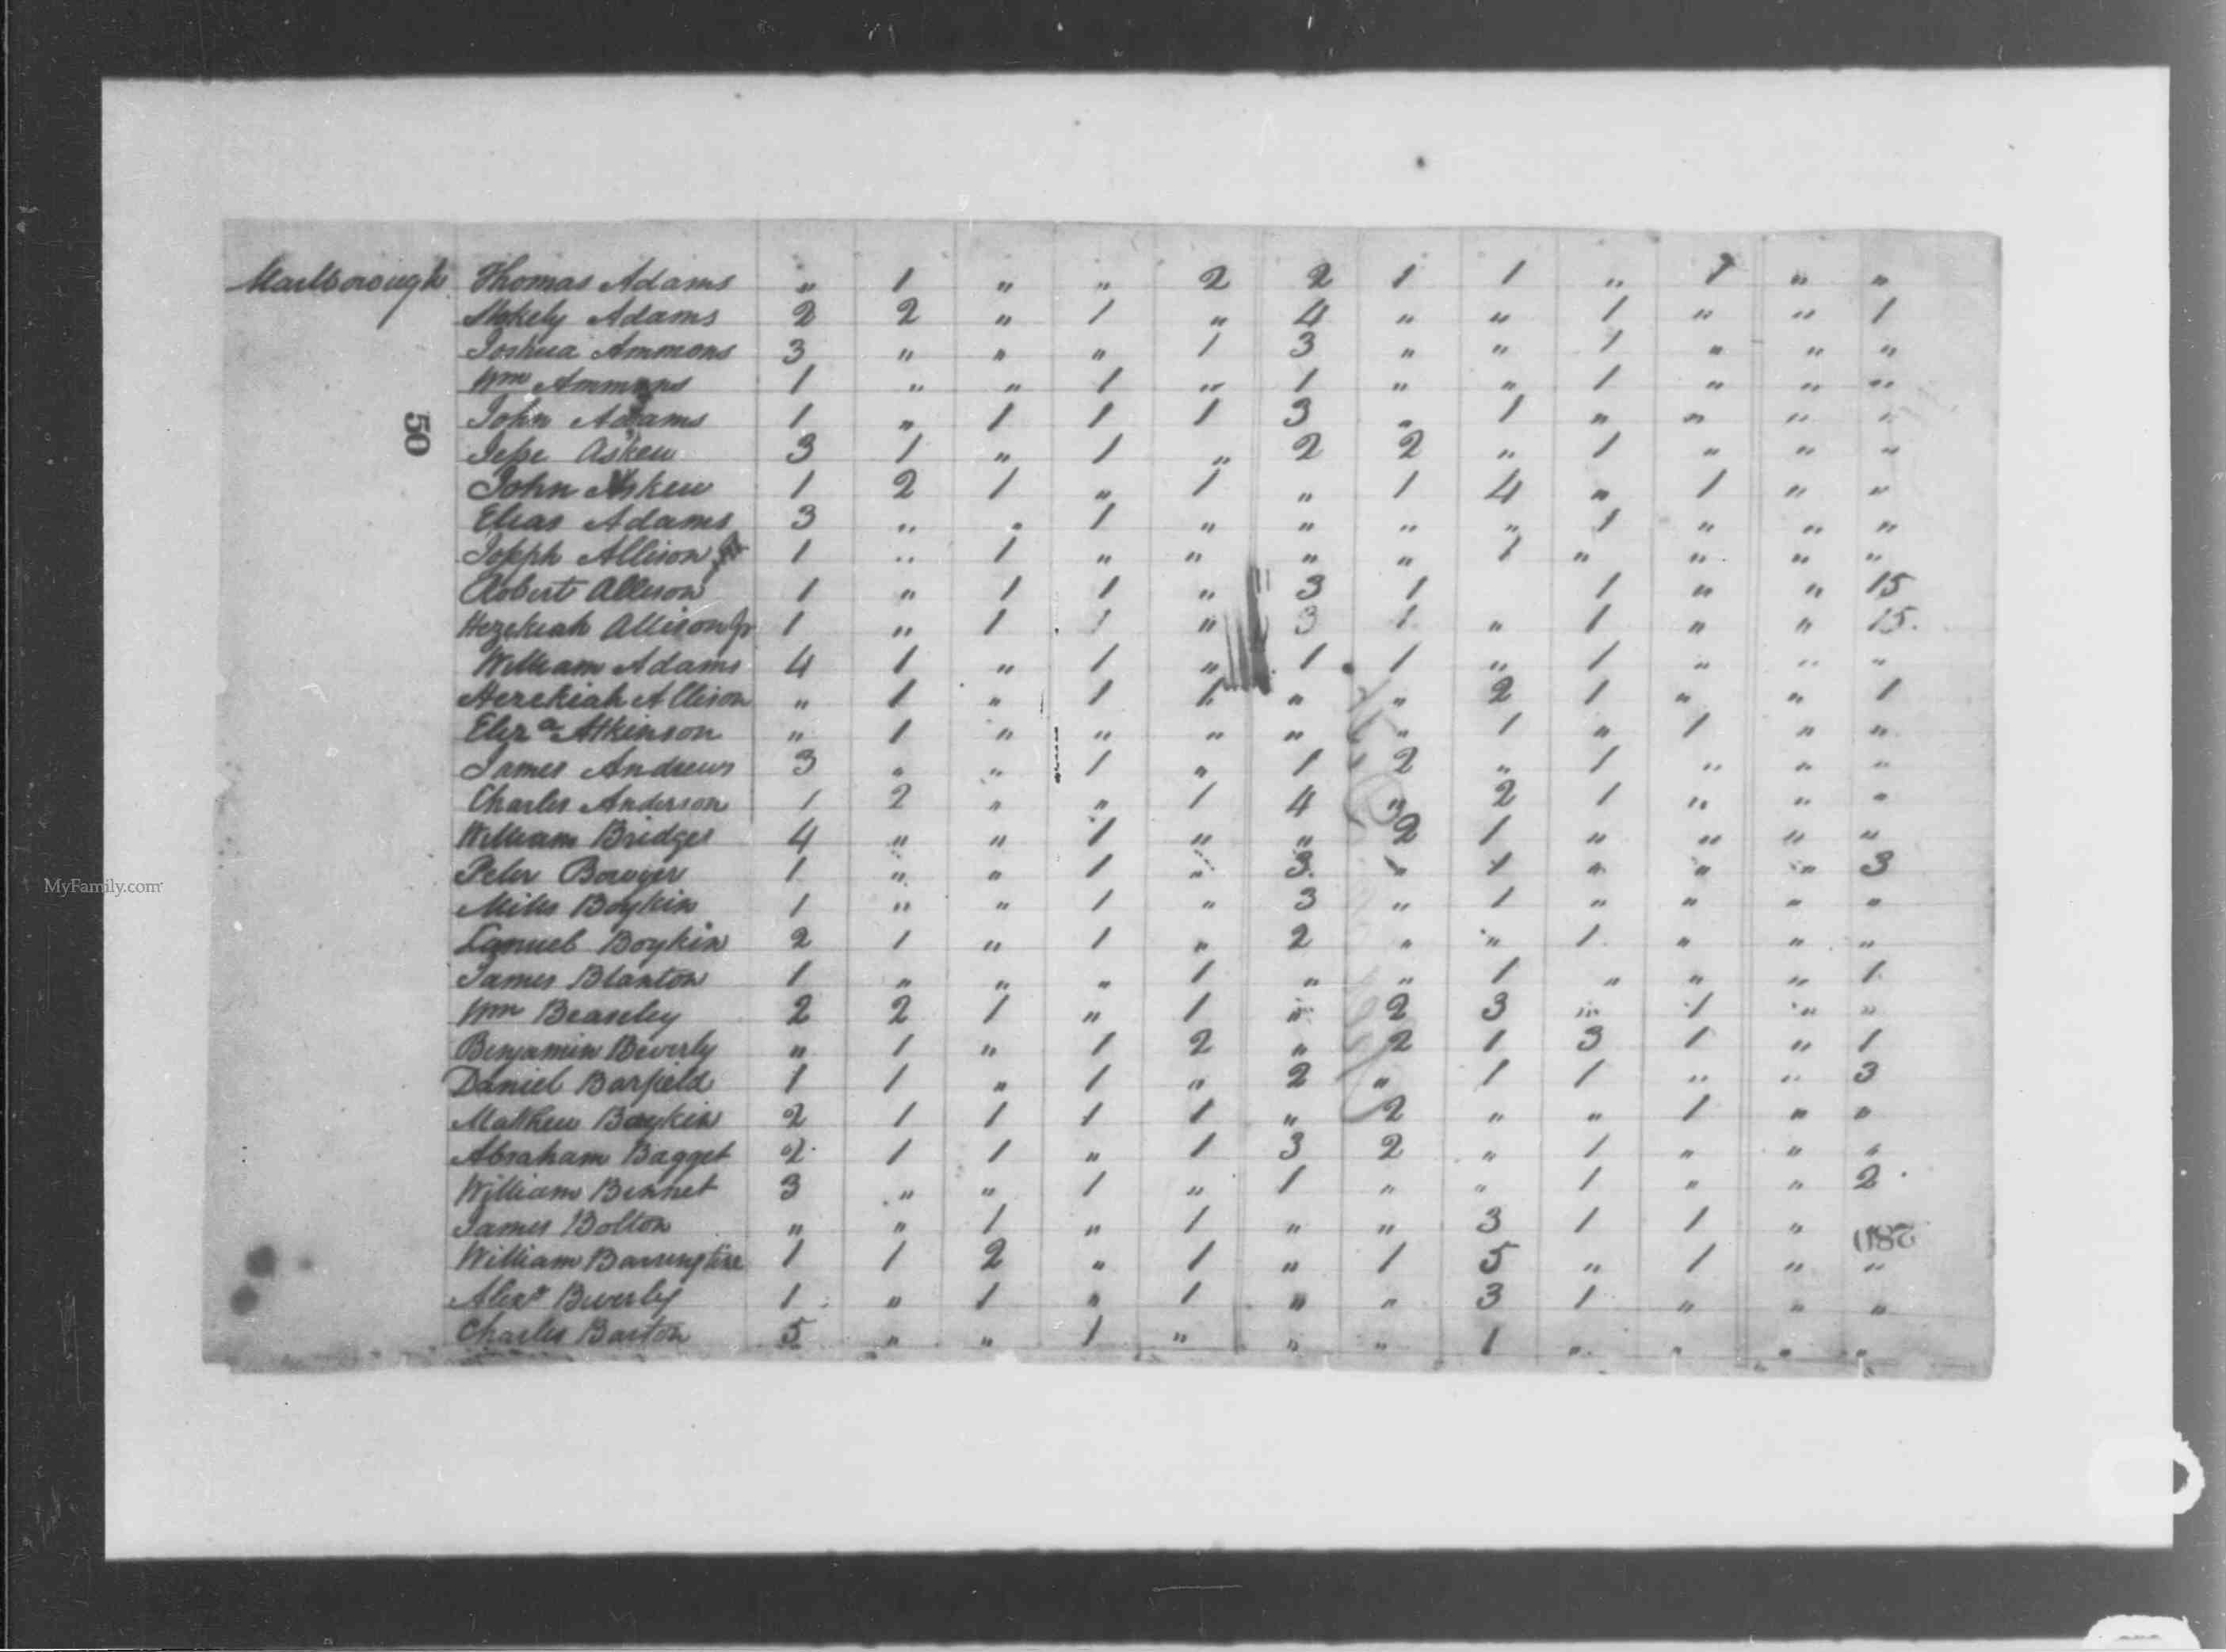 Marlborough Thomas Adams " 1 " " 2 2 1 1 " 1 " "
Stokely Adams 2 2 " 1 " 4 " " 1 " " 1
Joshua Ammons 3 " " " 1 3 " " 1 " " "
Wm Ammons 1 " " 1 " 1 " " 1 " " "
John Adams 1 " 1 1 1 3 " 1 " " " "
50
Jesse Askew 3 1 " 1 " 2 2 " 1 " " "
John Askew 1 2 1 " 1 " 1 4 " 1 " "
Elias Adams 3 " " 1 " " " " 1 " " "
Joseph Allison 1 " 1 " " " " 1 " " " "
Robert Allison 1 " 1 1 " 3 1 1 " " 15
Hezekiah Allison Jr 1 " 1 1 " 3 1 " 1 " " 15.
William Adams 4 1 " 1 " 1 1 " 1 " " "
Hezekiah Allison " 1 " 1 1 " " 2 1 " " 1
Eliza Atkinson " 1 " " " " " 1 " 1 " "
James Andrews 3 " " 1 " 1 2 " 1 " " "
Charles Anderson 1 2 " " 1 4 " 2 1 " " "
William Bridges 4 " " 1 " " 2 1 " " " "
MyFamily.com Peter Bowyer 1 " " 1 " 3 " 1 " " " 3
Miles Boykin 1 " " 1 " 3 " 1 " " " "
Lamuel Boykin 2 1 " 1 " 2 " " 1 " " "
James Blanton 1 " " " 1 " " 1 " " " 1
Wm Beaseley 2 2 1 " 1 " 2 3 " 1 " "
Benjamin Beverly " 1 " 1 2 " 2 1 3 1 " 1
Daniel Barfield 1 1 " 1 " 2 " 1 1 " " 3
Mathew Boykin 2 1 1 1 1 " 2 " " 1 " "
Abraham Bagget 2 1 1 " 1 3 2 " 1 " " "
William Bennet 3 " " 1 " 1 " " 1 " " 2
James Bolton " " 1 " 1 " " 3 1 1 "
William Barrington 1 1 2 " 1 " 1 5 " 1 " "
Alexr Beverly 1 " 1 " 1 " " 3 1 " " "
Charles Barton 5 " " 1 " " " 1 " " " "